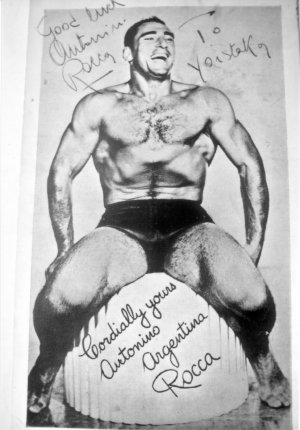 Good luck
Antonino
Rocca
To
Cordially yours
Antonino
Argentina
Rocca